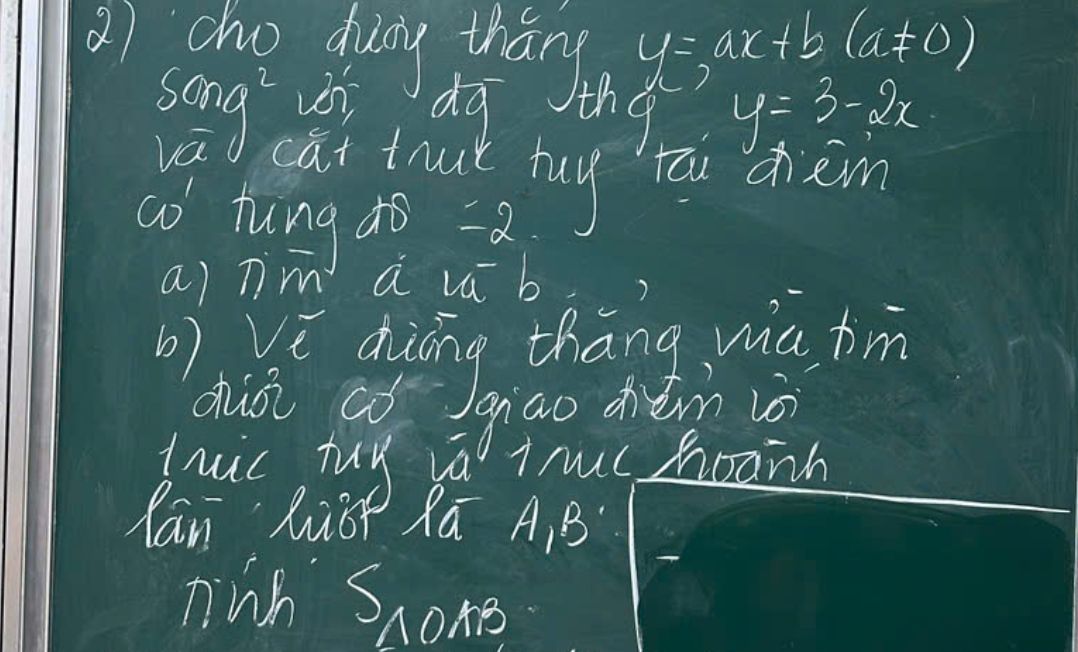 2) cho đường thẳng y = ax + b (a ≠ 0)
song² với đg thg y = 3 - 2x
và cắt trục tung tại điểm
có tung độ = 2.
a) Tìm a và b.
b) Vẽ đường thẳng vừa tìm
được có giao điểm với
trục tung và trục hoành
lần lượt là A, B.
Tính S△OAB